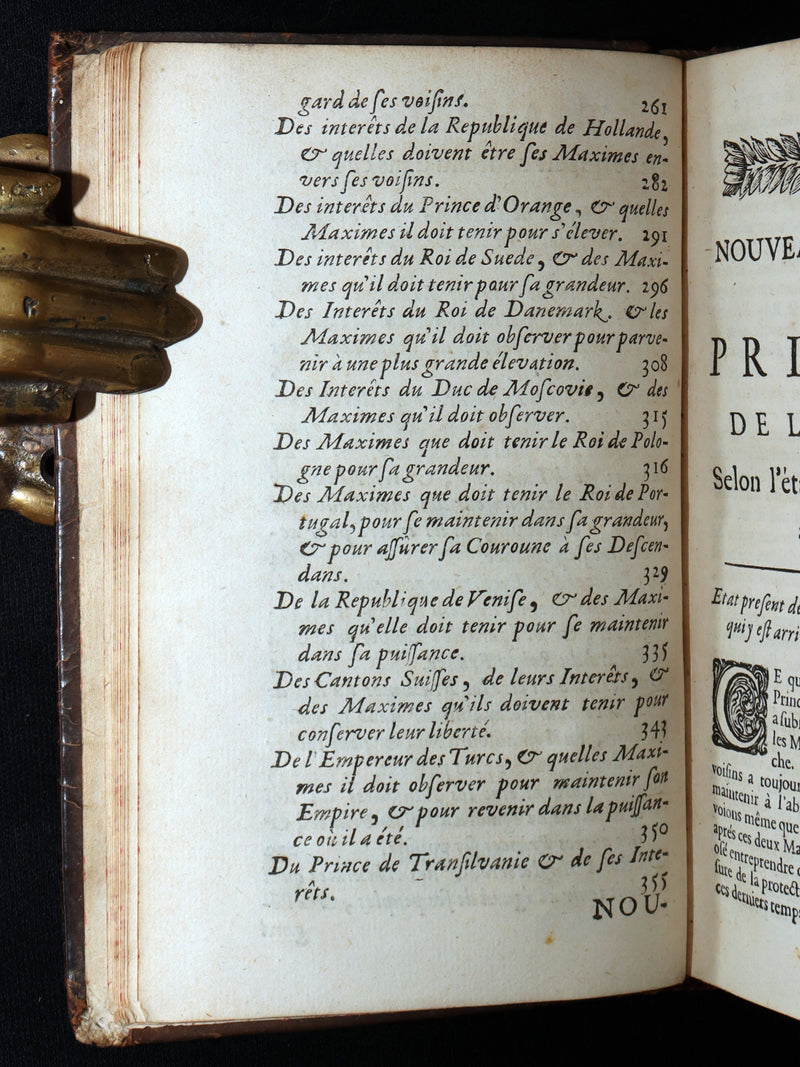 gard de ſes voiſins. 261
Des interêts de la Republique de Hollande,
& quelles doivent être ſes Maximes en-
vers ſes voiſins. 282
Des interêts du Prince d'Orange, & quelles
Maximes il doit tenir pour s'élever. 291
Des interêts du Roi de Suede, & des Maxi-
mes qu'il doit tenir pour ſa grandeur. 296
Des Interêts du Roi de Danemark. & les
Maximes qu'il doit obſerver pour parve-
nir à une plus grande élevation. 308
Des Interêts du Duc de Moſcovie, & des
Maximes qu'il doit obſerver. 315
Des Maximes que doit tenir le Roi de Polo-
gne pour ſa grandeur. 316
Des Maximes que doit tenir le Roi de Por-
tugal, pour ſe maintenir dans ſa grandeur,
& pour aſſûrer ſa Couroune à ſes Deſcen-
dans. 329
De la Republique de Veniſe, & des Maxi-
mes qu'elle doit tenir pour ſe maintenir
dans ſa puiſſance. 335
Des Cantons Suiſſes, de leurs Interêts, &
des Maximes qu'ils doivent tenir pour
conſerver leur liberté. 343
De l'Empereur des Turcs, & quelles Maxi-
mes il doit obſerver pour maintenir ſon
Empire, & pour revenir dans la puiſſan-
ce où il a été. 350
Du Prince de Tranſilvanie & de ſes Inte-
rêts. 355
NOU-
NOUVEA
PRI
DE L
Selon l'ét
Etat preſent de
qui y eſt arri
CE qu
Princ
a ſubj
les M
che.
voiſins a toujour
maintenir à l'ab
voions même que
aprés ces deux Ma
oſé entreprendre
ſure de la protect
ces derniers temp